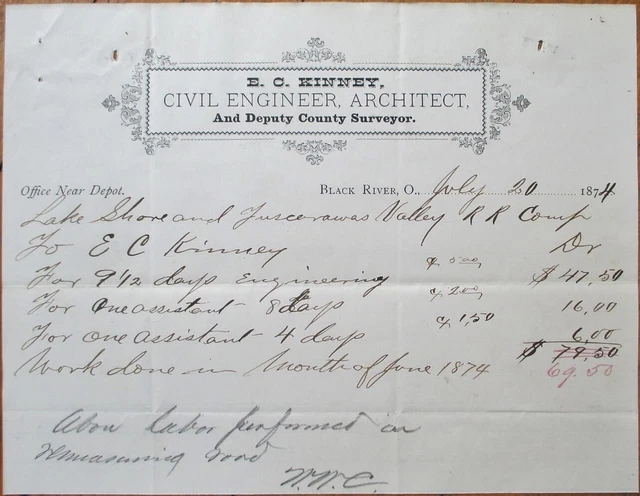 E. C. KINNEY,
CIVIL ENGINEER, ARCHITECT,
And Deputy County Surveyor.
Office Near Depot. BLACK RIVER, O., July 20 1874
Lake Shore and Tuscarawas Valley R R Comp
To E C Kinney Dr
For 9 1/2 days Engineering @ 5.00 $ 47,50
For One assistant 8 days @ 2.00 16,00
For one assistant 4 days @ 1,50 6,00
$ 79,50
Work done in Month of June 1874 69.50
Above labor performed in
remeasuring road
W.W.C.